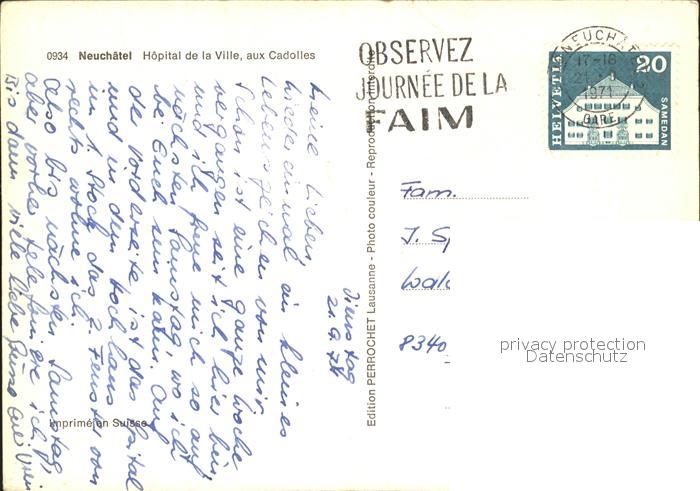 0934 Neuchâtel Hôpital de la Ville, aux Cadolles
OBSERVEZ
JOURNÉE DE LA
FAIM
NEUCHÂT
17-18
21.
1971
GARE
HELVETIA
20
SAMEDAN
Edition PERROCHET Lausanne - Photo couleur - Reproduction interdite
Imprimé en Suisse
Dienstag
21.9.71
Meine Lieben,
hier einmal ein kleines
Lebenszeichen von mir.
Schon ist eine ganze Woche
vergangen seit ich hier bin
und ich freue mich so auf
nächsten Samstag, wo ich
bei Euch sein kann. Auf
der Vorderseite ist das Spital
und in dem Hochhaus
im 1. Stock das 2. Fenster von
rechts wohne ich.
Also bis nächsten Samstag,
aber vorher telefoniere ich.
Bis dann viele liebe Grüsse
Fam.
J. Sp
Wald
8340
privacy protection
Datenschutz